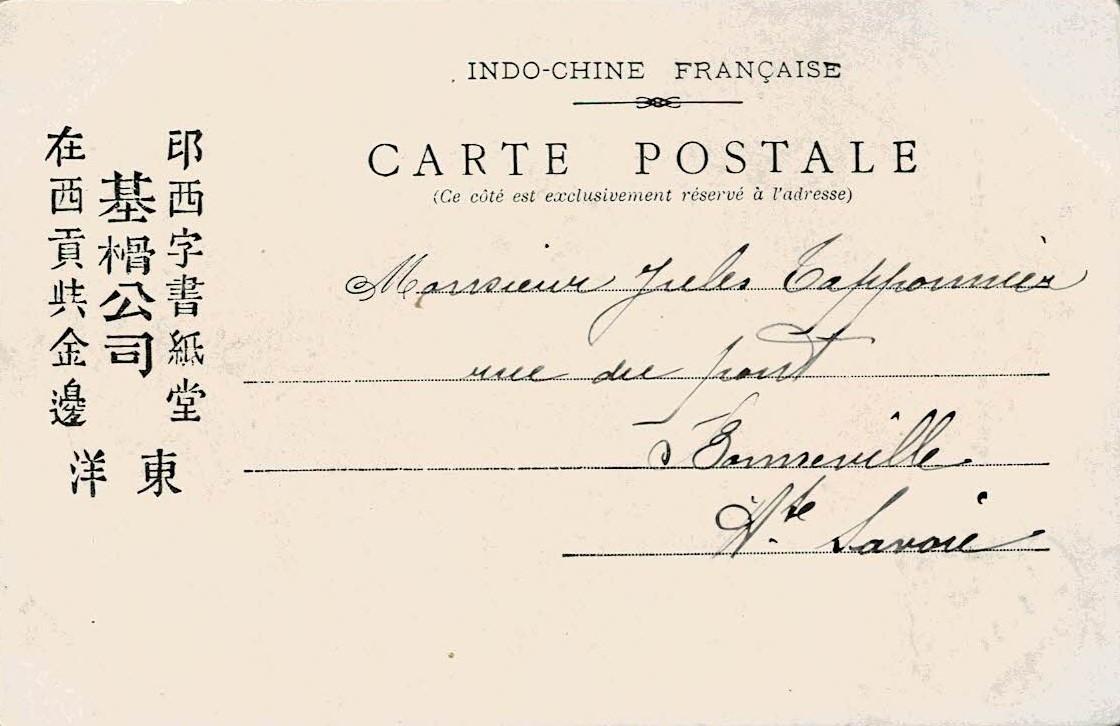 INDO-CHINE FRANÇAISE
CARTE POSTALE
(Ce côté est exclusivement réservé à l'adresse)
印西字書紙堂
基榾公司
在西貢共金邊
東洋
Monsieur Jules Tapponnier
rue du pont
à Bonneville
Hte Savoie